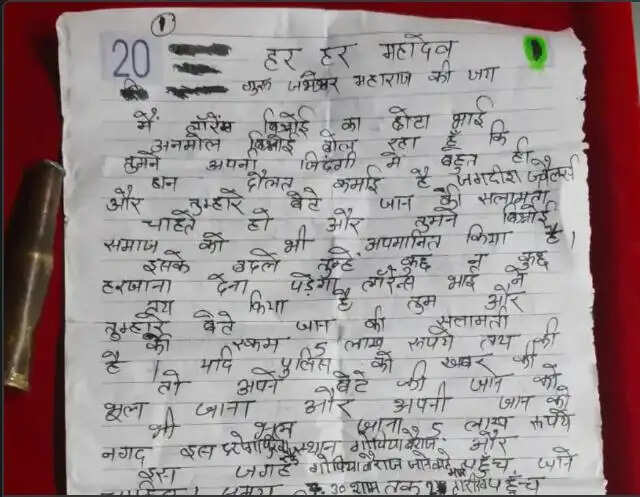 1
20
हर हर महादेव
गुरू जम्भेश्वर महाराज की जय
मैं लॉरेंस बिश्नोई का छोटा भाई
अनमोल बिश्नोई बोल रहा हूँ कि
तुमने अपनी जिंदगी में बहुत ही
धन दौलत कमाई है जगदीश ज्वैलर्स
और तुम्हारे बेटे जान की सलामती
चाहते हो और तुमने बिश्नोई
समाज को भी अपमानित किया है।
इसके बदले तुम्हे कुछ न कुछ
हरजाना देना पड़ेगा लॉरेन्स भाई ने
तय किया है तुम और
तुम्हारे बेटे जान की सलामती
की रकम 5 लाख रूपये तय की
है। यदि पुलिस को खबर की
तो अपने बेटे की जान को
भूल जाना और अपनी जान को
भी भूल जाना 5 लाख रूपये
नगद इस स्थान और
इस जगह पहुँच जाने
30 शाम तक पहुँच